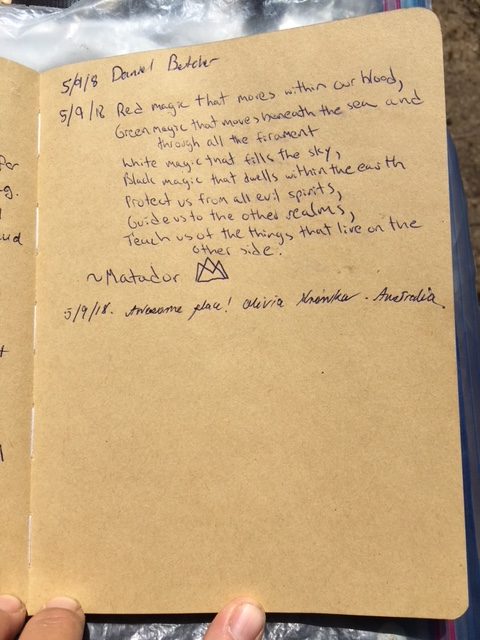 5/9/8 Daniel Betcher
5/9/18 Red magic that moves within our blood,
Green magic that moves beneath the sea and
through all the firament
White magic that fills the sky,
Black magic that dwells within the earth
Protect us from all evil spirits,
Guide us to the other realms,
Teach us of the things that live on the
other side.
~Matador
5/9/18. Awesome place! Olivia . Australia
per
g.